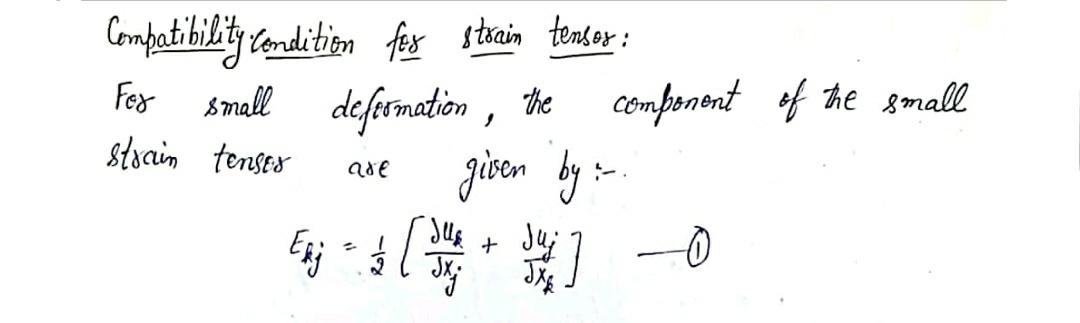 Compatibility Condition for strain tensor :
For small deformation , the component of the small
strain tensor are given by :-
E_kj = 1/2 [ ∂u_k/∂x_j + ∂u_j/∂x_k ] —①